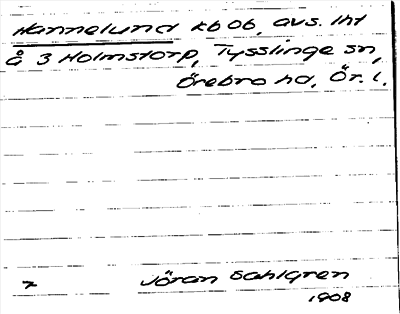 Hannelund kb 06, avs. lht
å 3 Holmstorp, Tysslinge sn,
Örebro hd, Ör. l.
Jöran Sahlgren
1908